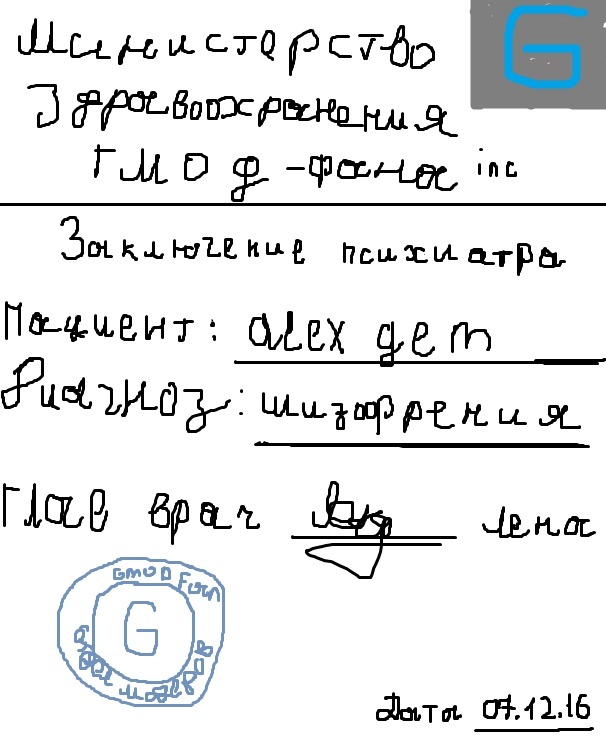 Министерство
G
Здравоохранения
ГМОД-фанас inc
Заключение психиатра
Пациент: alex gem
Диагноз: шизофрения
Глав врач лена
Gmod Fan
G
Дата 07.12.16